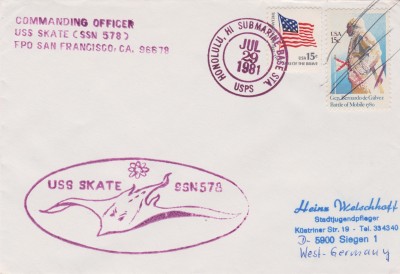 COMMANDING OFFICER
USS SKATE (SSN 578)
FPO SAN FRANCISCO, CA. 96678
HONOLULU, HI SUBMARINE BASE STA.
JUL
29
1981
USPS
USA 15c
USA
15c
Gen. Bernardo de Gálvez
Battle of Mobile 1780
USS SKATE SSN578
Heinz Welschhoff
Stadtjugendpfleger
Küstriner Str. 19 - Tel. 334340
D- 5900 Siegen 1
West-Germany